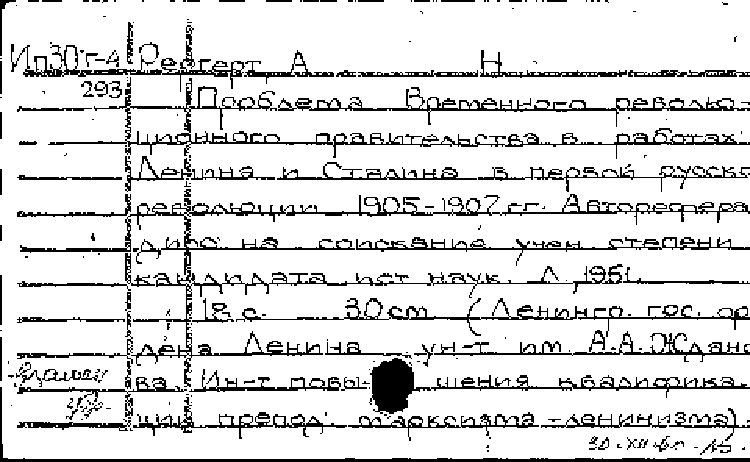 Ип30г-4 Рег­герт А Н
293 Проблема Временного револю-
ционного правительства в работах
Ленина и Сталина в первой русско
революции 1905-1907 гг. Авторефера
дисс. на соискание учен степени
кандидата ист наук. Л, 1951.
18 с. 30 см (Ленингр. гос. ор
дена Ленина ун-т им. А.А. Ждано
ва Ин-т повы- шения квалифика-
ции препод. марксизма-ленинизма)